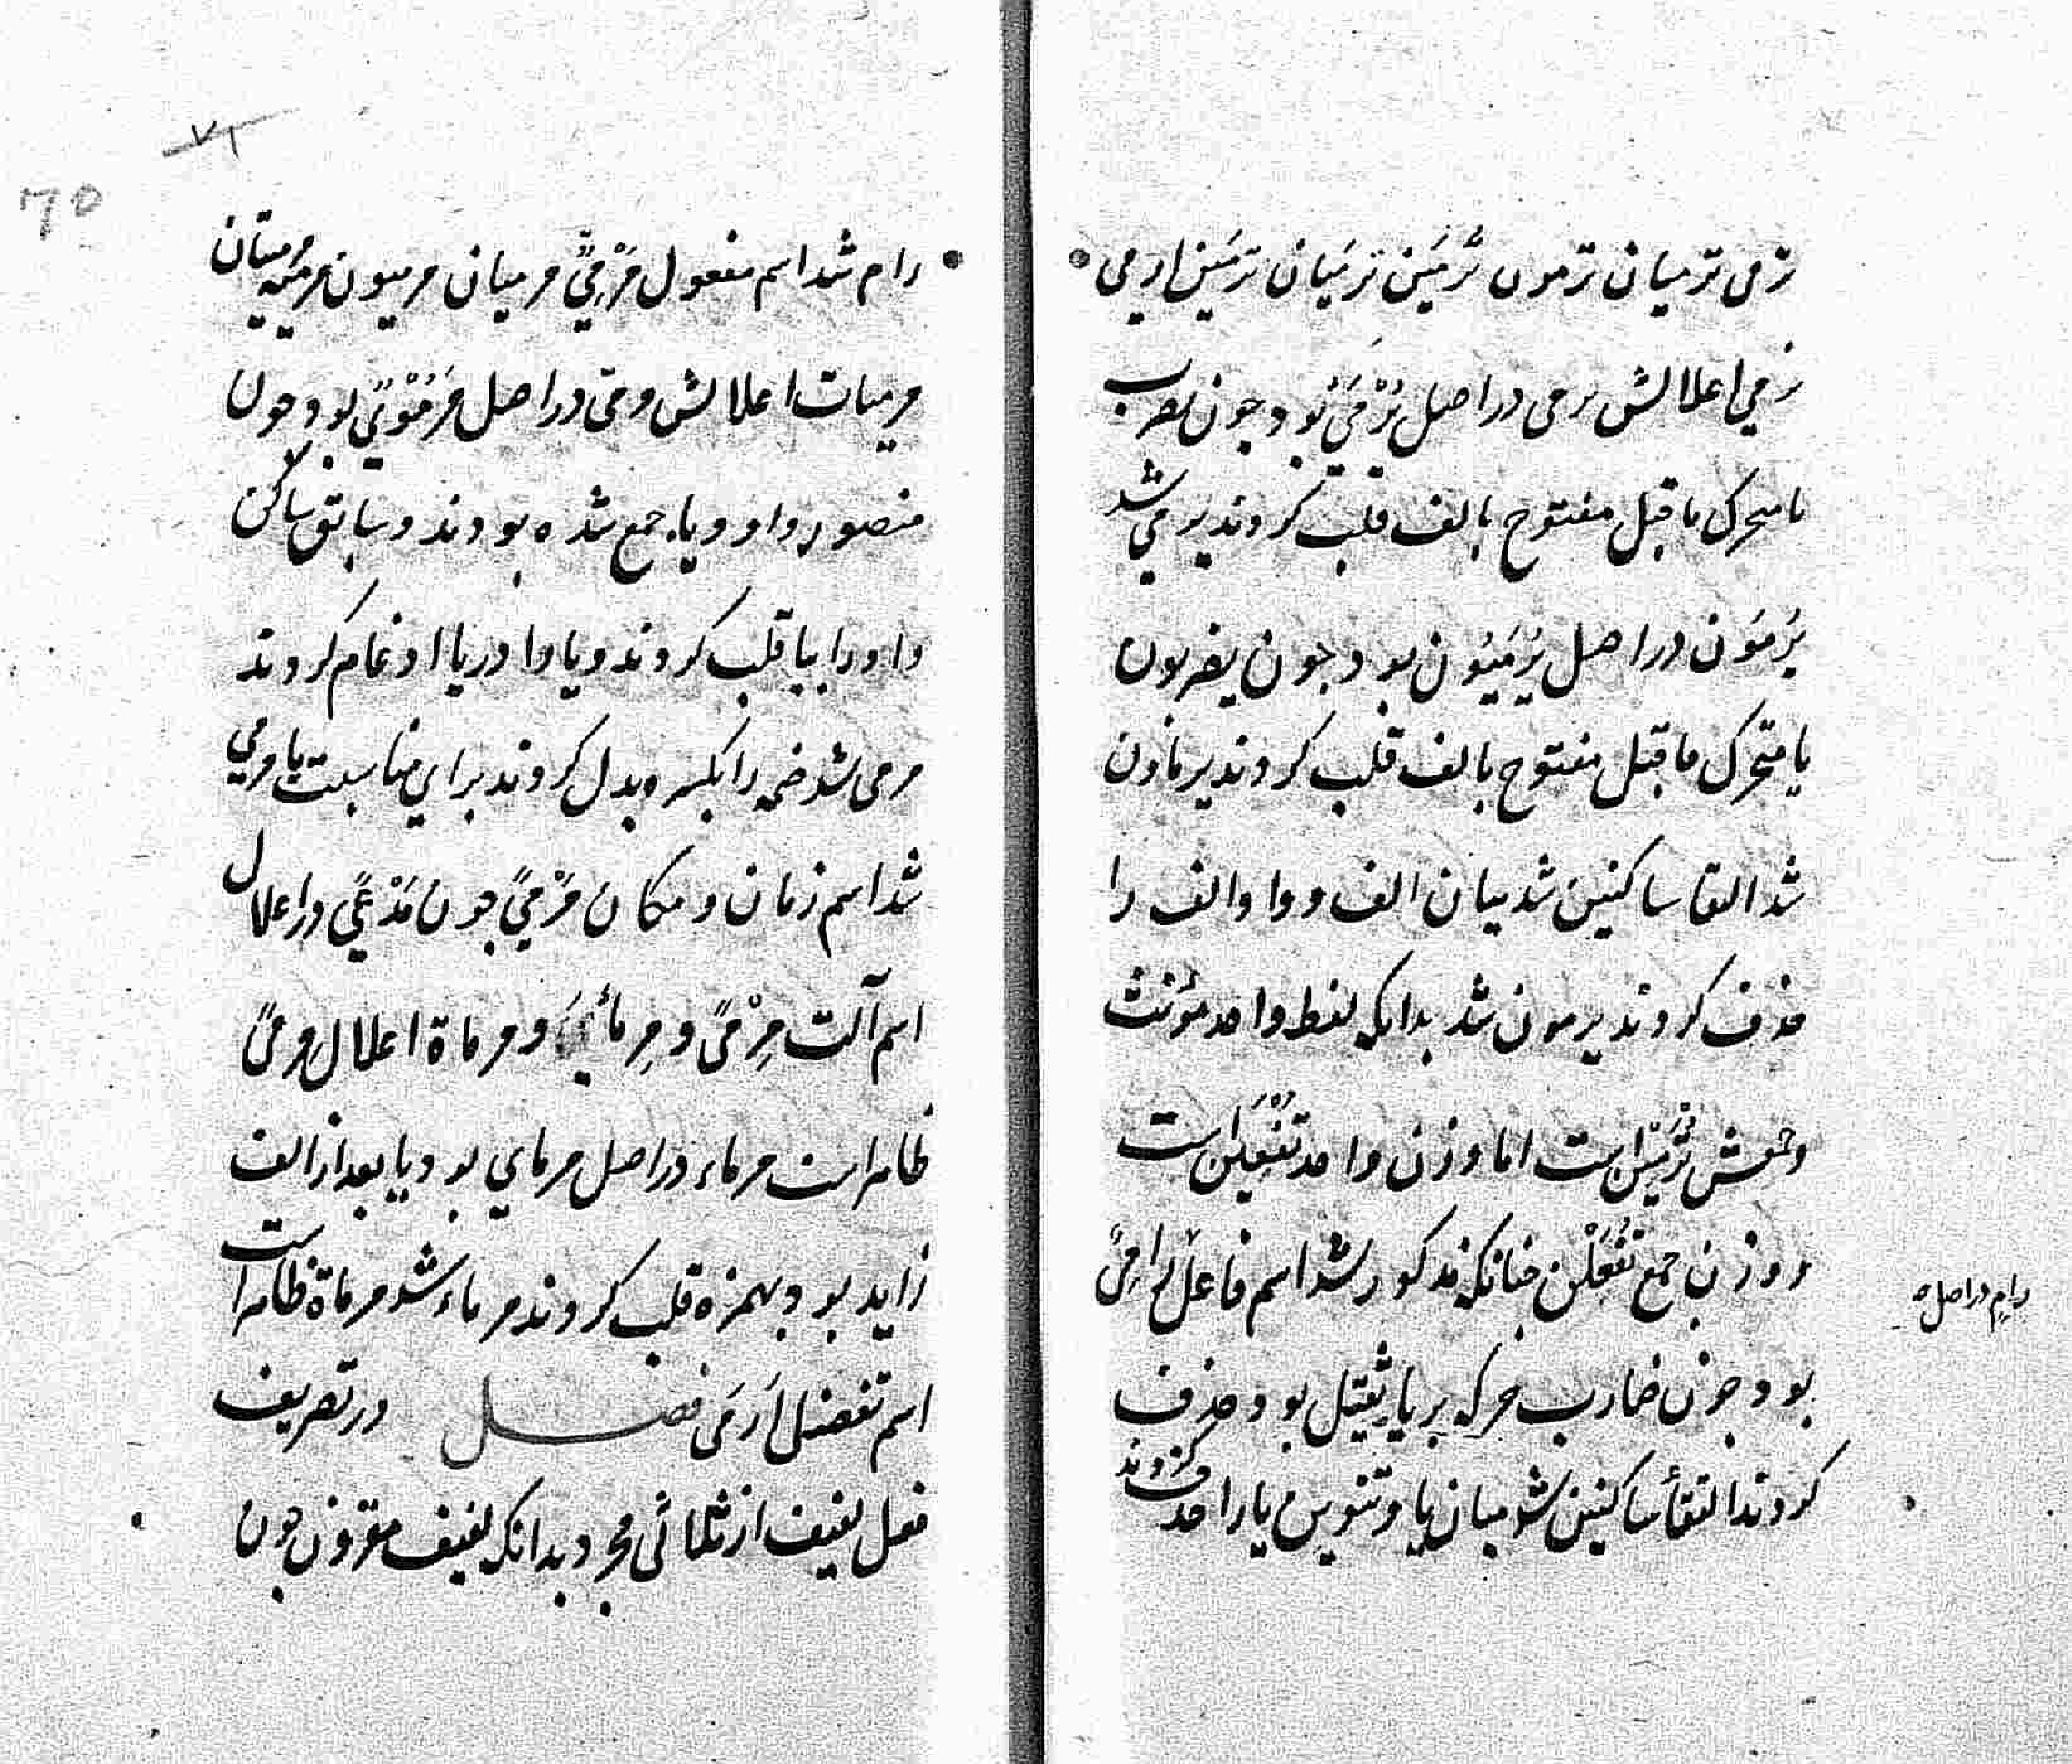 ترمی ترمیان ترمون ترمین ترمیان ترمین ارمی
نرمی اعلالش یرمی دراصل یُرْمَیُ بود چون یضرب
یا متحرک ماقبل مفتوح بالف قلب کردند یرمی شد
یُرمَون دراصل یُرْمَیُون بود چون یضربون
یا متحرک ماقبل مفتوح بالف قلب کردند یرماون
شد التقا ساکنین شد میان الف و واو الف را
حذف کردند یرمون شد بدانکه لفظ واحد مؤنث
وجمعش تُرْمَیْن است اما وزن واحد تُفْعَین است
و وزن جمع تُفْعَلْن چنانکه مذکور شد اسم فاعل رامیٌ
رامٍ دراصل
بود چون ضارب حرکه بر یا ثقیل بود حذف
کردند التقأ ساکنین شد میان یا و تنوین یا را حذف کردند
۷۱
۶۵
رام شد اسم مفعول مَرْمِیٌّ مرمیان مرمیون مرمیة مرمیتان
مرمیات اعلالش مرمی دراصل مَرْمُوْیٌ بود چون
منصور واو و یا جمع شده بودند و سابق ساکن
واو را بیا قلب کردند و یا را در یا ادغام کردند
مرمی شد ضمه را بکسره بدل کردند برای مناسبت یا مرمی
شد اسم زمان و مکان مَرْمیً چون مَدْعیً در اعلال
اسم آلت مِرْمیً و مِرماء و مرماة اعلال مِرمیً
ظاهر است مرماء دراصل مرمای بود یا بعد از الف
زاید بود بهمزه قلب کردند مرماء شد مرماة ظاهر است
اسم تفضیل اَرمَی فصل در تصریف
فعل لفیف از ثلاثی مجرد بدانکه لفیف مقرون چون